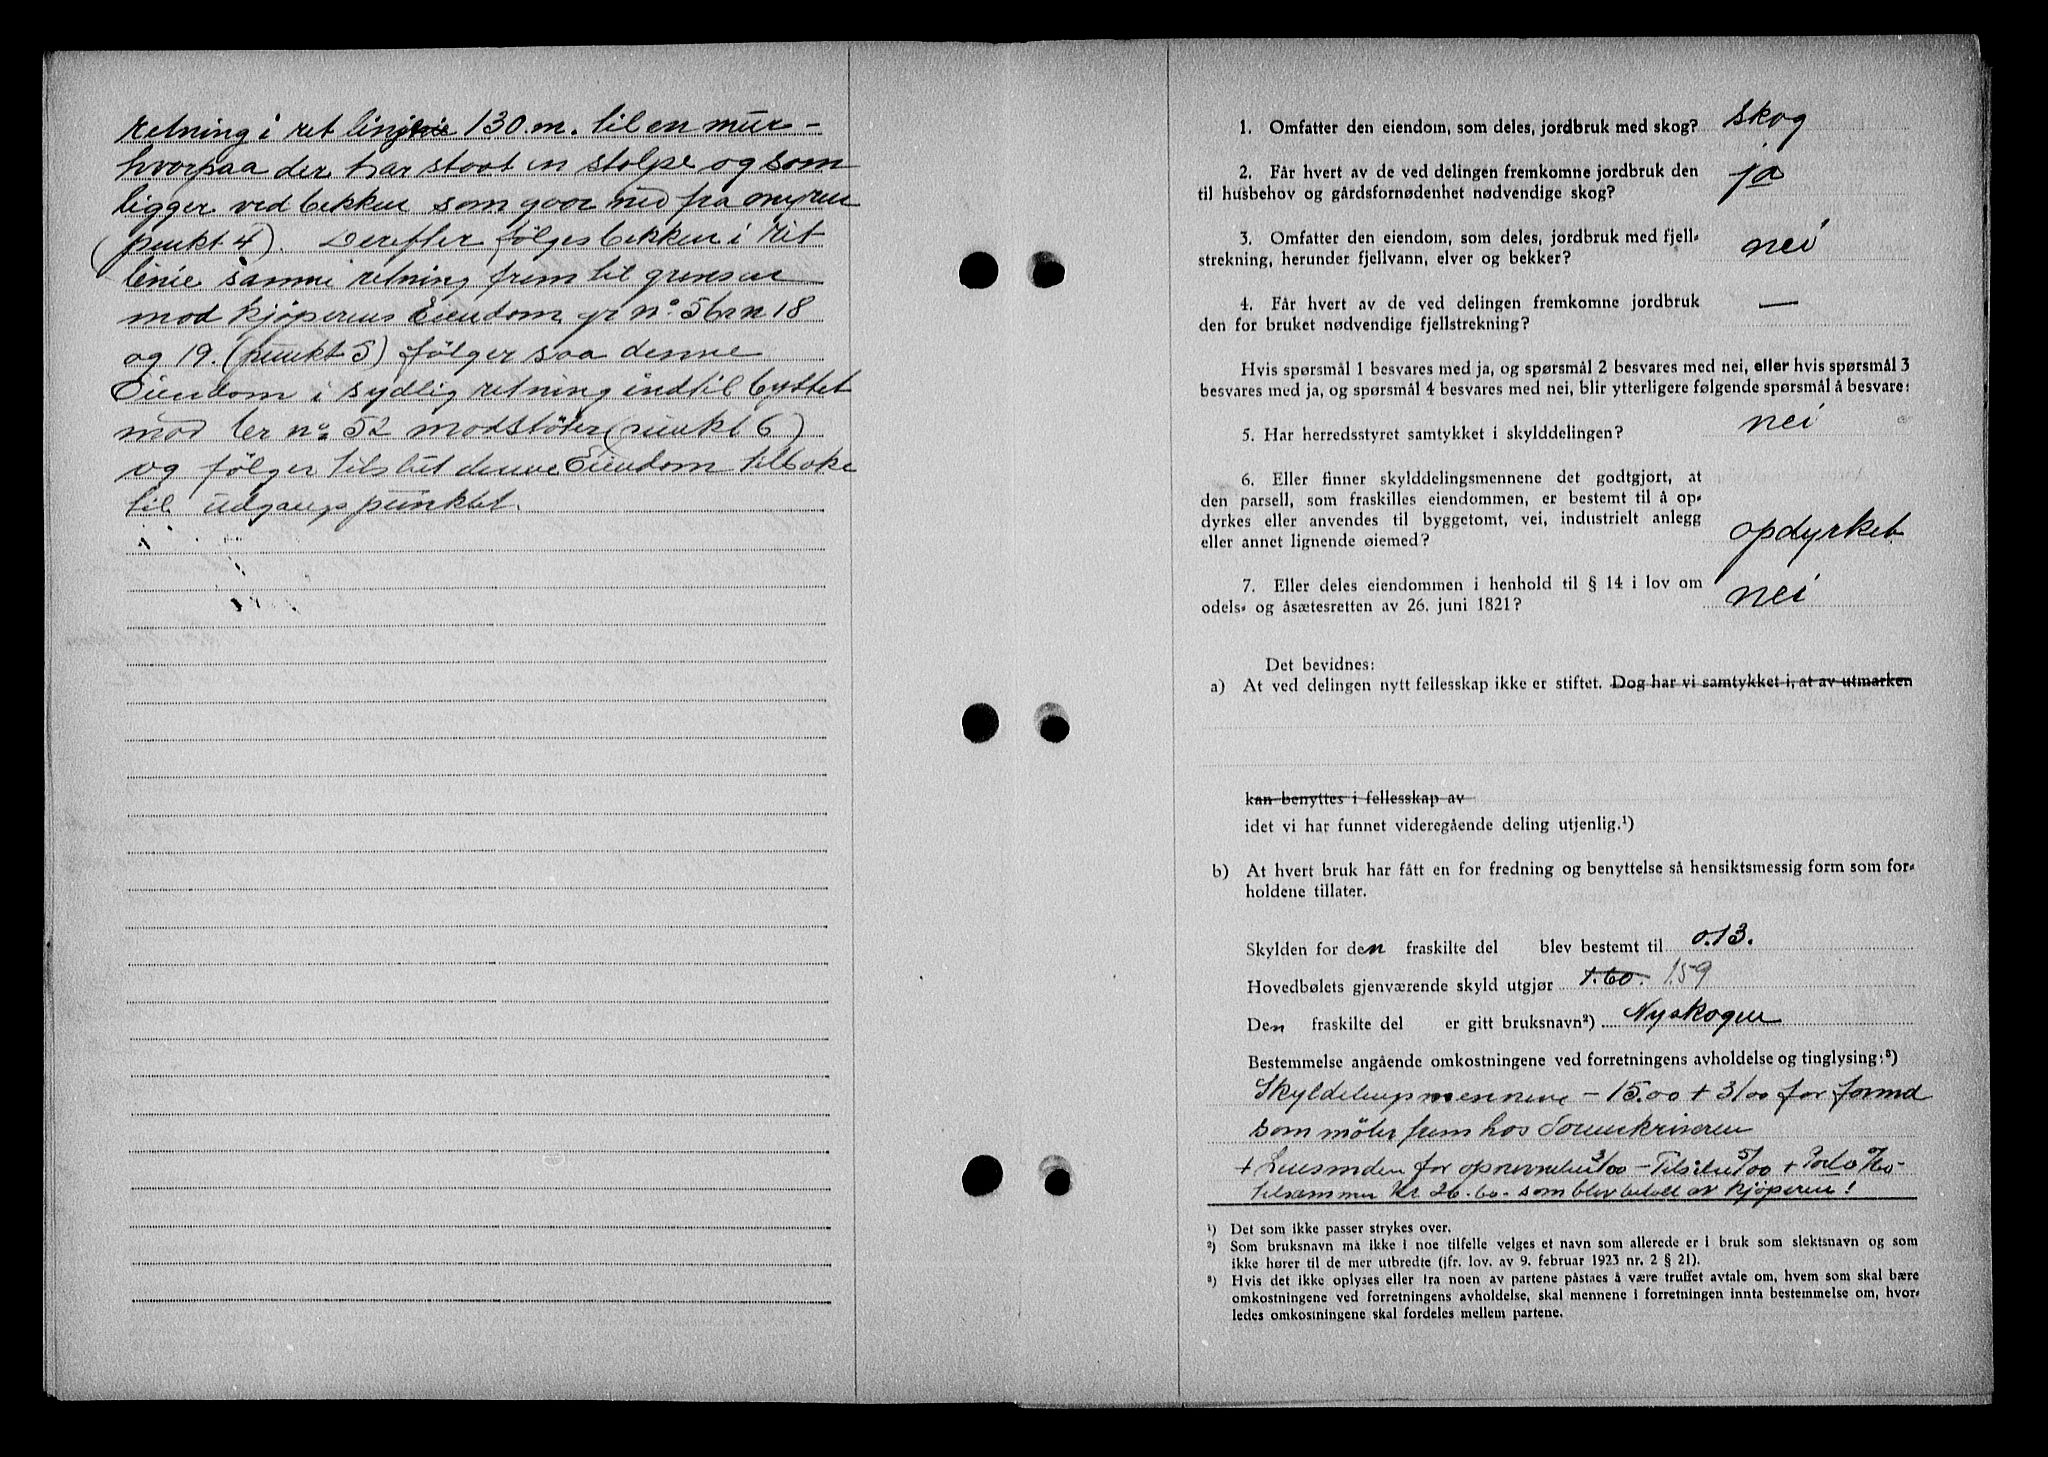 retning i ret linje 130.m. til en mur-
hvorpaa der har staat en stolpe og som
ligger ved bekken som gaar ned fra myren
(punkt 4). Derefter følges bekken i ret
linie samme retning frem til grensen
mod kjøperens Eiendom gr no. 56 br n 18
og 19. (punkt 5) følger saa denne
Eiendom i sydlig retning indtil byttet
mod br no. 52 modstøter (punkt 6)
og følger tilslut denne Eiendom tilbake
til udgangspunktet.
1. Omfatter den eiendom, som deles, jordbruk med skog? skog
2. Får hvert av de ved delingen fremkomne jordbruk den
til husbehov og gårdsfornødenhet nødvendige skog? ja
3. Omfatter den eiendom, som deles, jordbruk med fjell-
strekning, herunder fjellvann, elver og bekker? nei
4. Får hvert av de ved delingen fremkomne jordbruk
den for bruket nødvendige fjellstrekning? —
Hvis spørsmål 1 besvares med ja, og spørsmål 2 besvares med nei, eller hvis spørsmål 3
besvares med ja, og spørsmål 4 besvares med nei, blir ytterligere følgende spørsmål å besvare:
5. Har herredsstyret samtykket i skylddelingen? nei
6. Eller finner skylddelingsmennene det godtgjort, at
den parsell, som fraskilles eiendommen, er bestemt til å op-
dyrkes eller anvendes til byggetomt, vei, industrielt anlegg
eller annet lignende øiemed? opdyrket
7. Eller deles eiendommen i henhold til § 14 i lov om
odels- og åsætesretten av 26. juni 1821? nei
Det bevidnes:
a) At ved delingen nytt fellesskap ikke er stiftet. Dog har vi samtykket i, at av utmarken
kan benyttes i fellesskap av
idet vi har funnet videregående deling utjenlig.¹)
b) At hvert bruk har fått en for fredning og benyttelse så hensiktsmessig form som for-
holdene tillater.
Skylden for den fraskilte del blev bestemt til 0.13.
Hovedbølets gjenværende skyld utgjør 1.60. 1.59
Den fraskilte del er gitt bruksnavn²) Nyskogen
Bestemmelse angående omkostningene ved forretningens avholdelse og tinglysing:³)
Skyldelingsmennene - 15.00 + 3/00 for formd
som møter frem hos Sorenskriveren
+ Lensmden for opnevnelse 3/00 - 5/00 + Porto 0/60 -
tilsammen kr 26.60 - som blev betalt av kjøperen!
¹) Det som ikke passer strykes over.
²) Som bruksnavn må ikke i noe tilfelle velges et navn som allerede er i bruk som slektsnavn og som
ikke hører til de mer utbredte (jfr. lov. av 9. februar 1923 nr. 2 § 21).
³) Hvis det ikke oplyses eller fra noen av partene påstaes å være truffet avtale om, hvem som skal bære
omkostningene ved forretningens avholdelse, skal mennene i forretningen innta bestemmelse om, hvor-
ledes omkostningene skal fordeles mellem partene.